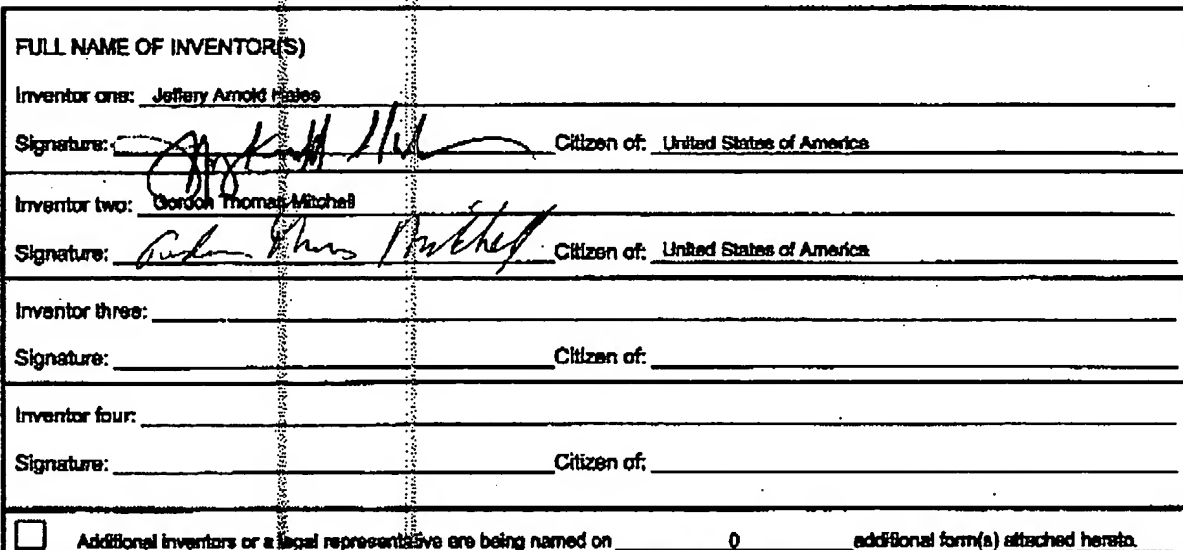 FULL NAME OF INVENTOR(S)
Inventor one: Jeffery Arnold Hales
Signature: Citizen of: United States of America
Inventor two: Gordon Thomas Mitchell
Signature: Gordon Thomas Mitchell Citizen of: United States of America
Inventor three:
Signature: Citizen of:
Inventor four:
Signature: Citizen of:
Additional inventors or a legal representative are being named on 0 additional form(s) attached hereto.